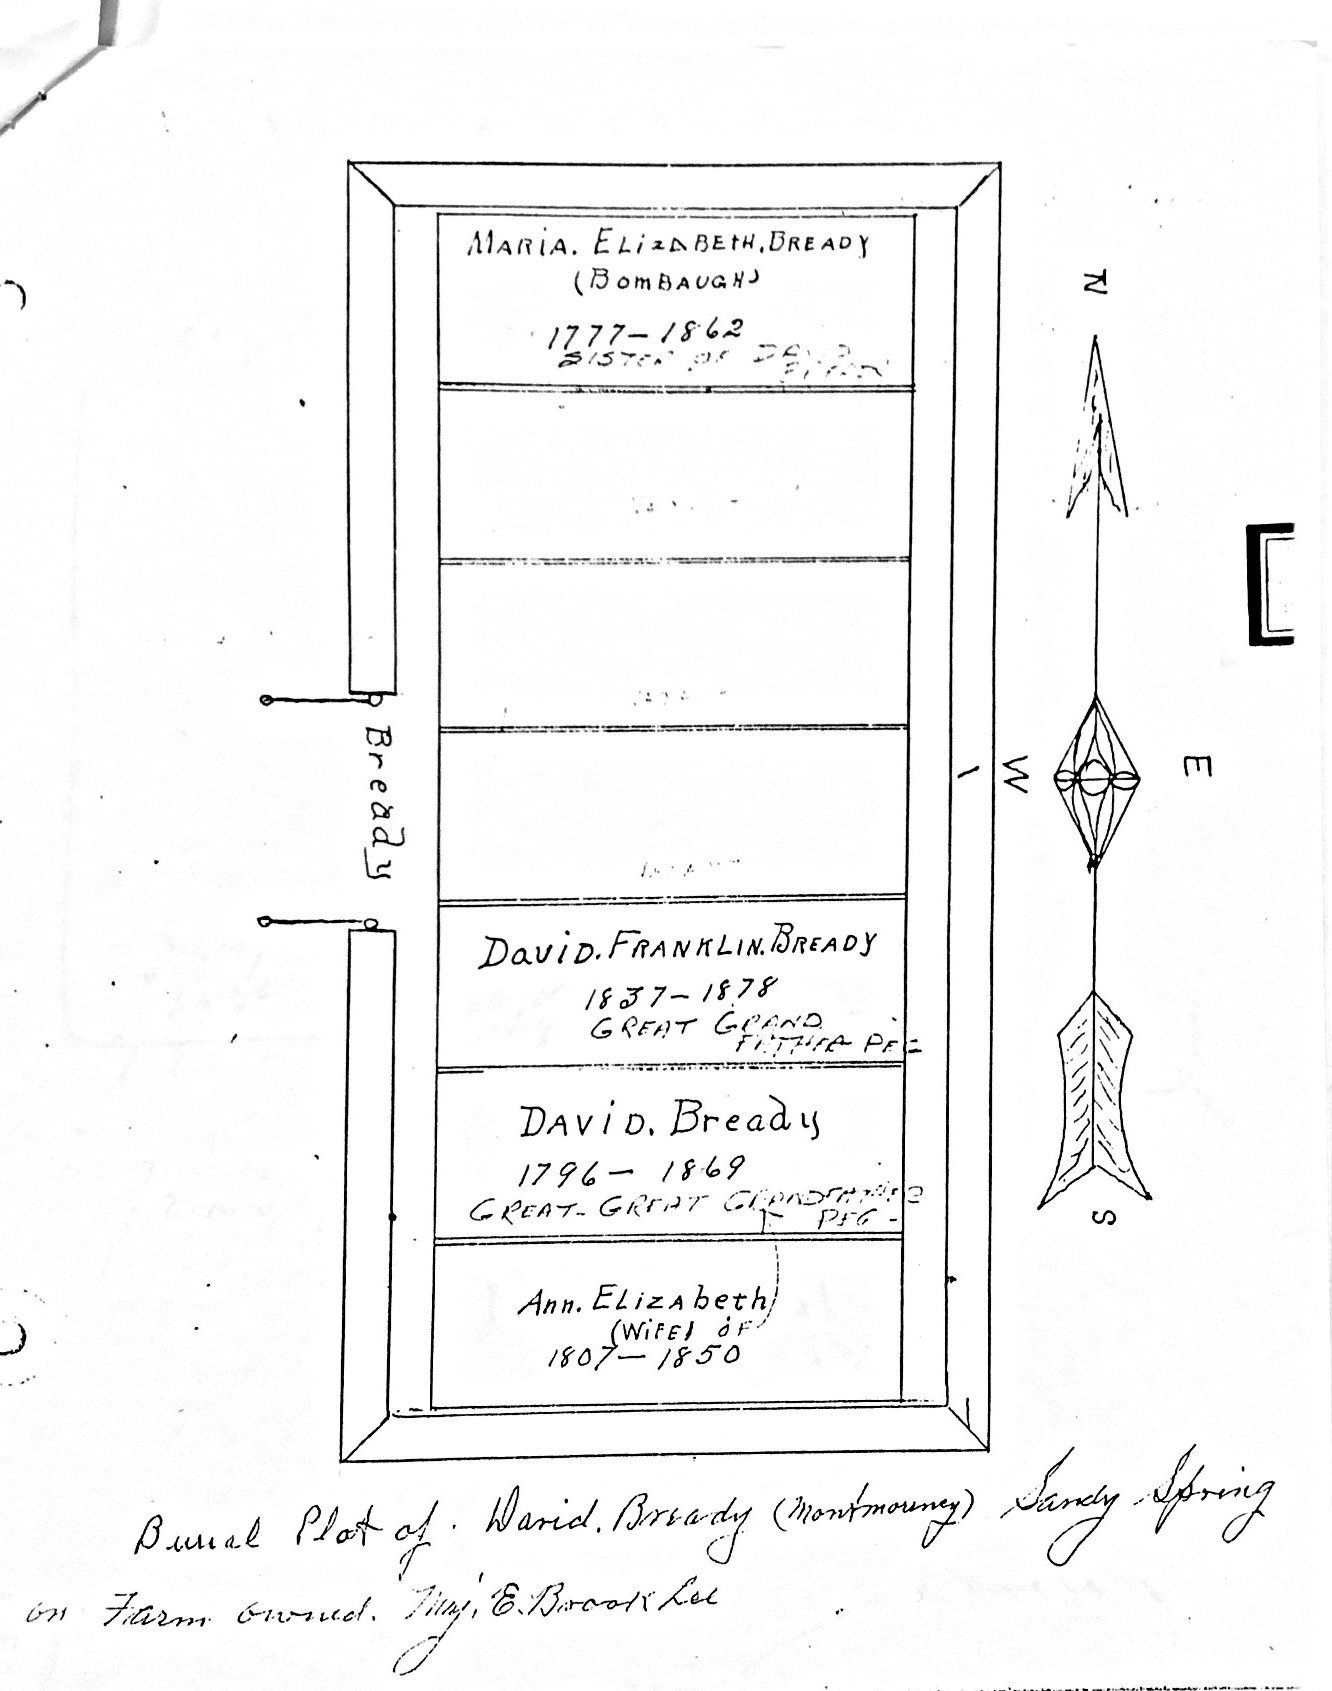 MARIA. ELIZABETH. BREADY
(BOMBAUGH)
1777-1862
SISTER OF DAVID
N
W
E
S
Bready
DAVID. FRANKLIN. BREADY
1837-1878
GREAT GRAND
FATHER PEG
DAVID. Bready
1796- 1869
GREAT-GREAT GRANDFATHER
PEG-
Ann. ELIZAbeth
(WIFE) OF
1807-1850
Burial Plot of. David. Bready (Montmouney) Sandy Spring
on Farm owned. Maj. E. Brook Lee